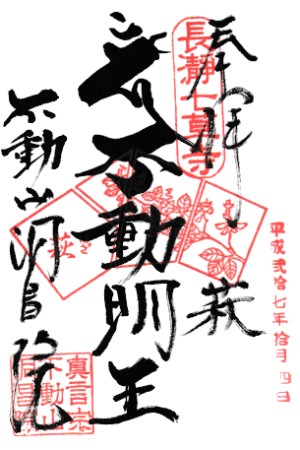 奉拝
長瀞七草寺
萩
平成弐拾七年拾月四日
苔不動明王
萩
不動山洞昌院
真言宗
不動山
洞昌院